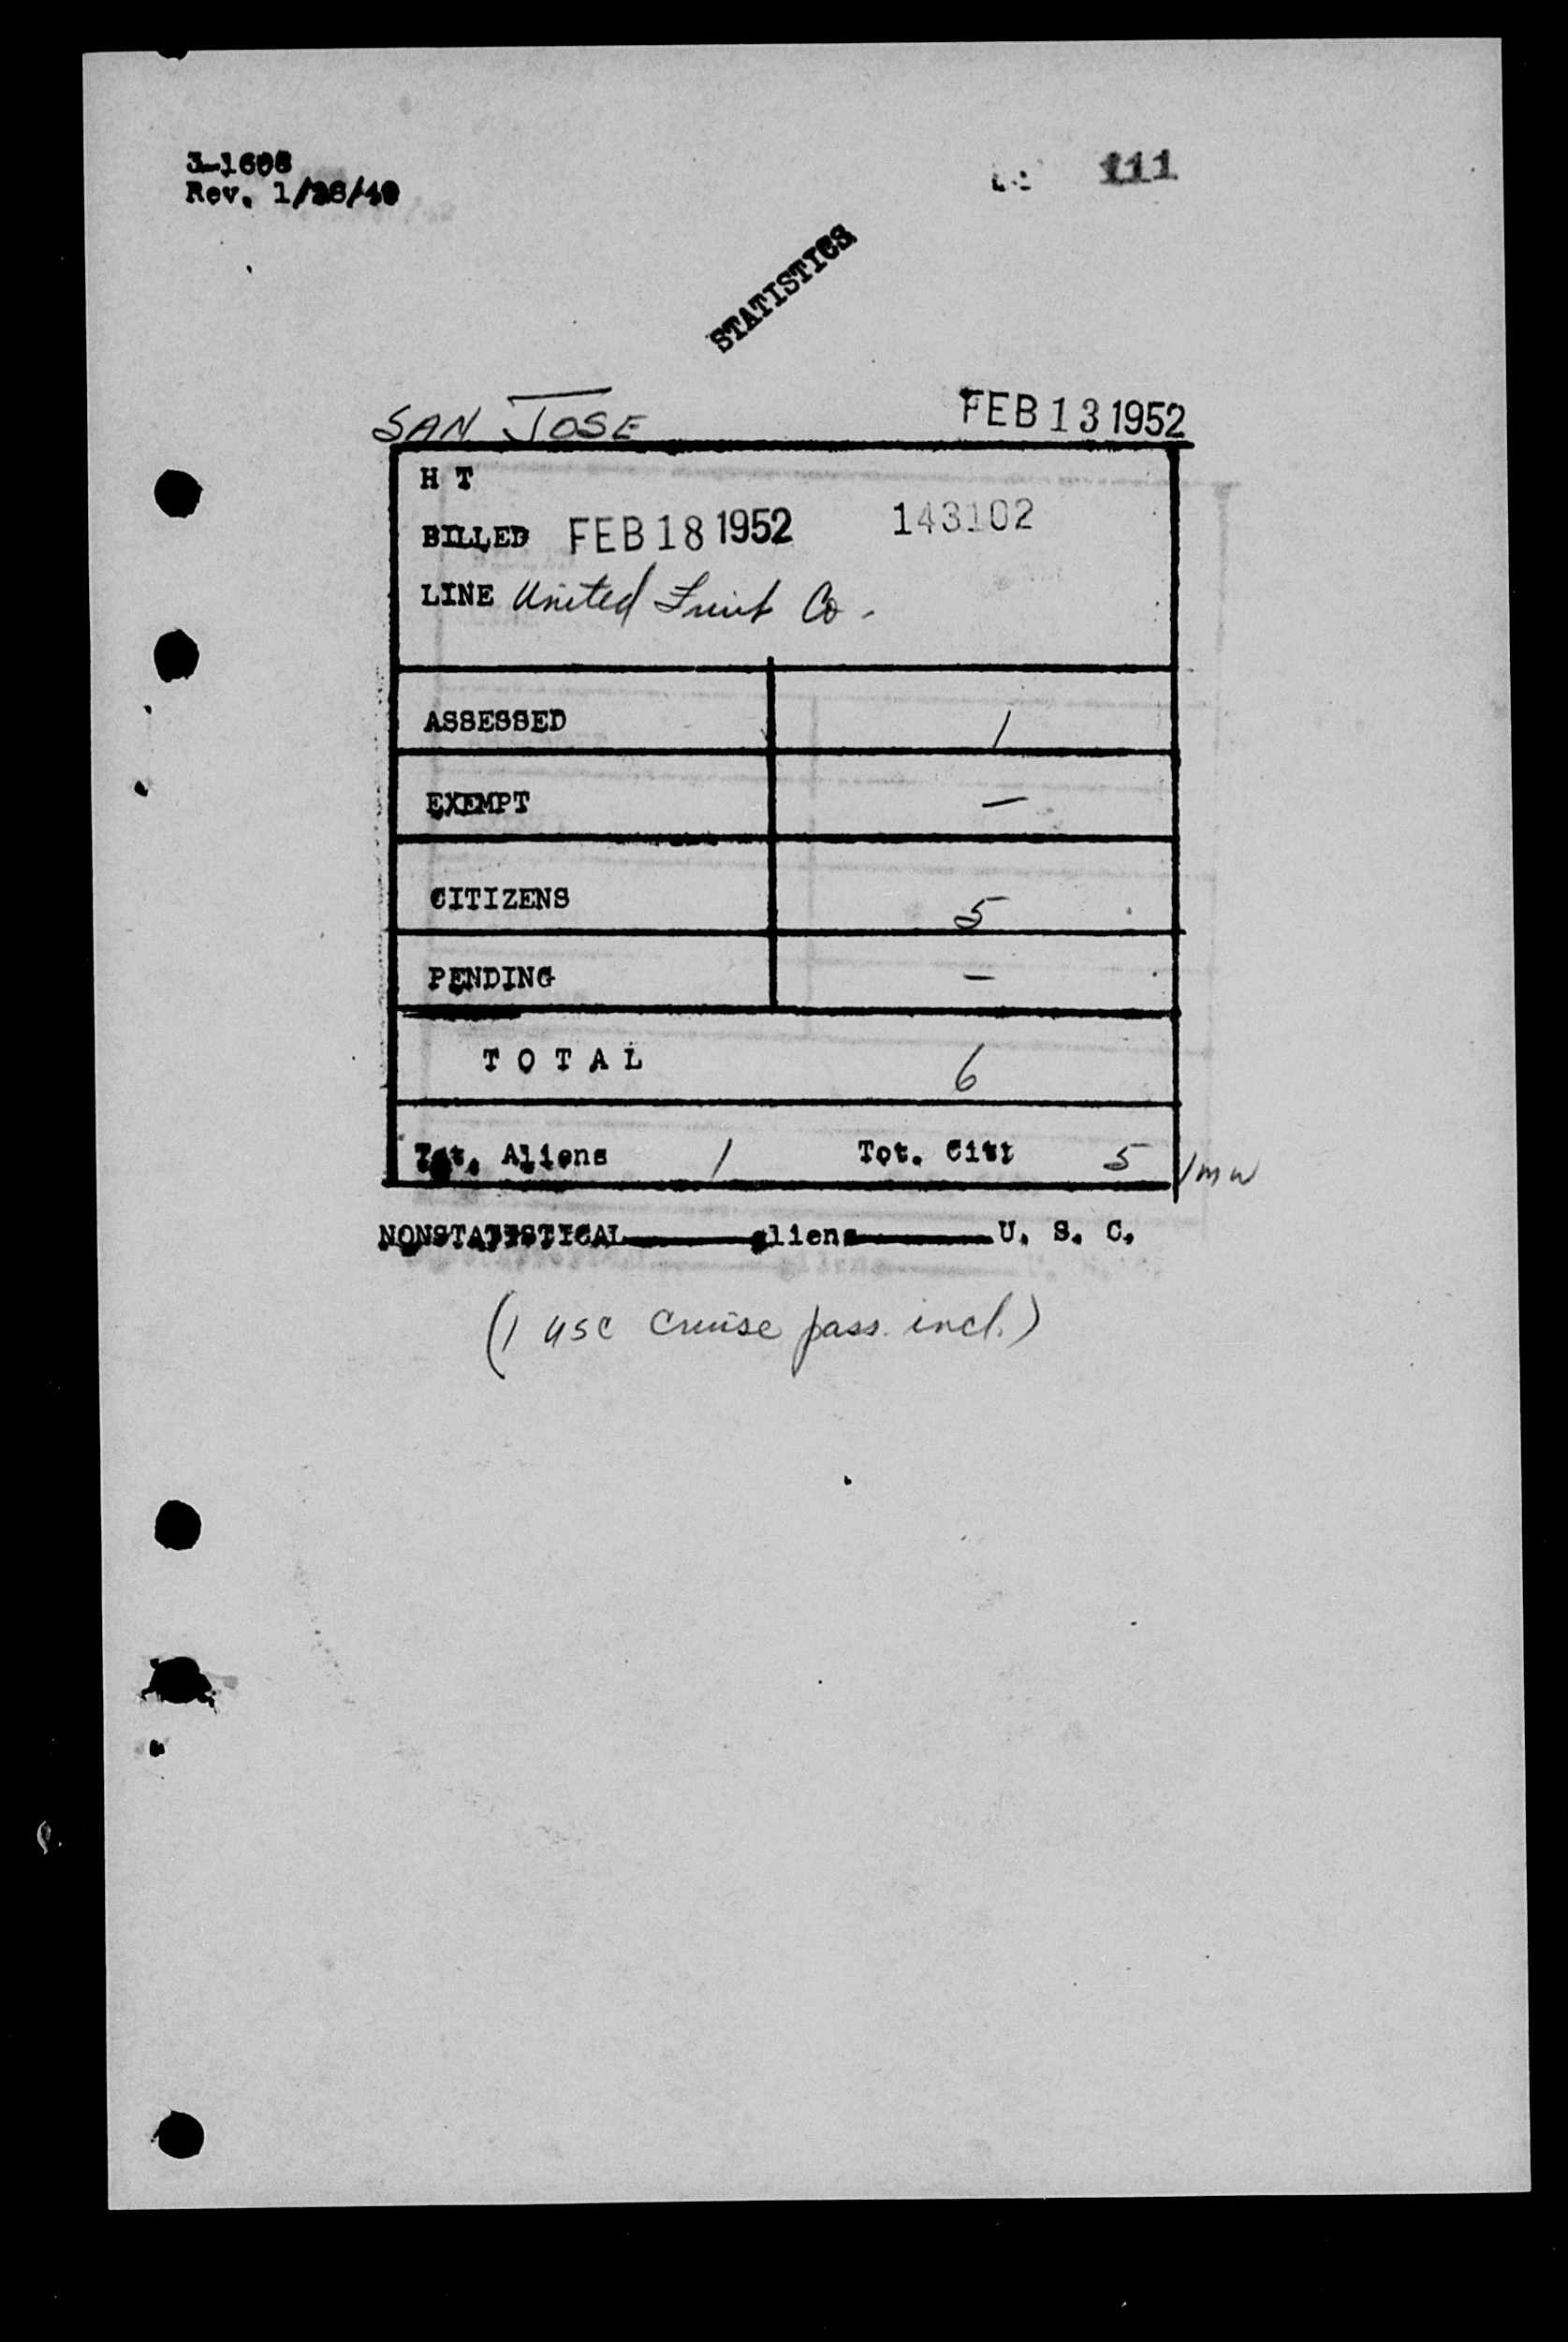 3-1608
Rev. 1/26/49
111
STATISTICS
SAN JOSE FEB 13 1952
H T
BILLED FEB 18 1952 143102
LINE United Fruit Co.
ASSESSED 1
EXEMPT —
CITIZENS 5
PENDING —
TOTAL 6
Tot. Aliens 1 Tot. Citz 5 /mw
NONSTATISTICAL aliens U. S. C.
(1 USC Cruise pass. incl.)